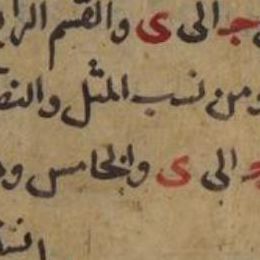 جـ الى ى والقسم الرا
ومن نسب المثل والنصـ
جـ الى ى والخامس و